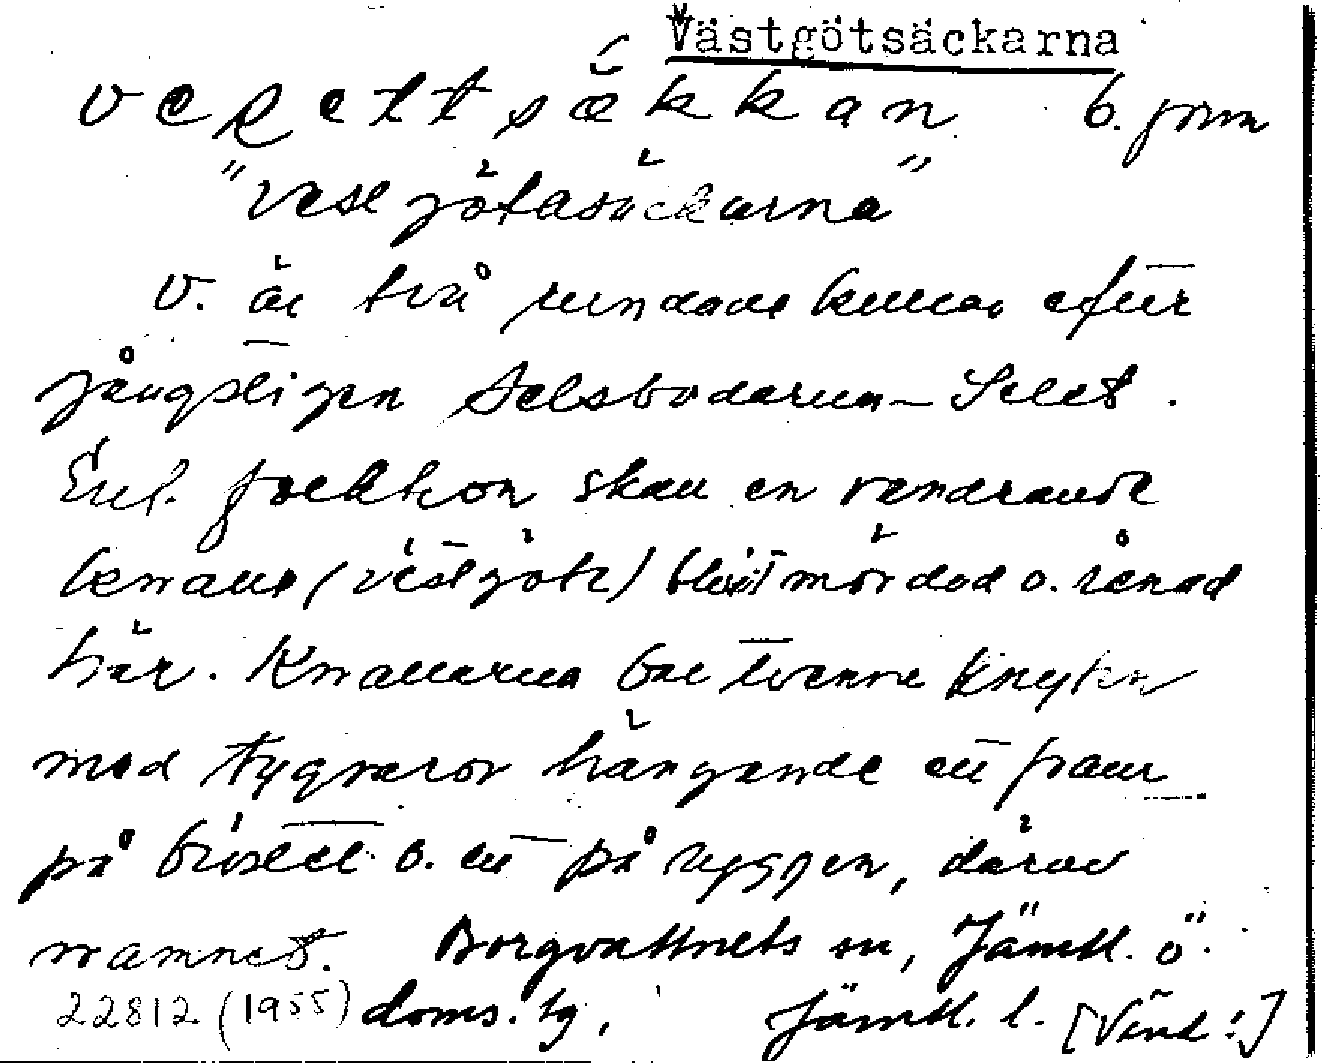 Västgötsäckarna
veʂettsǽkkan b. form
"Vestgötasäckarna"
V. är två rundade kullar efter
gångstigen Selsbodarna–Selet.
Enl. folktron skall en vandrande
knalle (västgöte) blivit mördad o. rånad
här. Knallarna bar tvenne knyten
med tygvaror hängande ett fram
på bröstet o. ett på ryggen, därav
namnet. Borgvattnets sn, Jämtl. ö.
22812 (1955) doms. tg, Jämtl. l. [Vänd!]